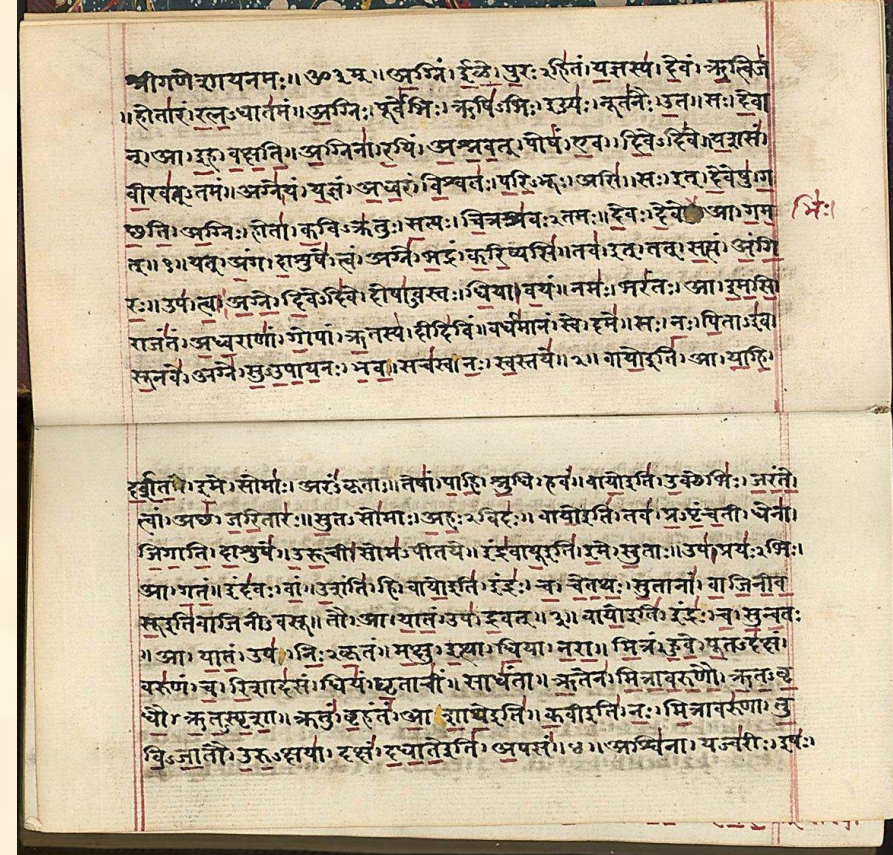 श्रीगणेशायनमः॥ॐ३म्॥अग्निं।ईळे।पुरःऽहितं।यज्ञस्य।देवं।ऋत्विजं
॥होतारं।रत्नऽधातमं॥अग्निः।पूर्वेभिः।ऋषिऽभिः।ईड्यः।नूतनैः।उत॥सः।देवा
न्।आ।इह।वक्षति॥अग्निना।रयिं।अश्नवत्।पोषं।एव।दिवेऽदिवे॥यशसं।
वीरवत्ऽतमं॥अग्ने।यं।यज्ञं।अध्वरं।विश्वतः।परिऽभूः।असि॥सः।इत्।देवेषु।ग
च्छति।अग्निः।होता।कविऽक्रतुः।सत्यः।चित्रश्रवःऽतमः॥देवः।देवे आ।गम
भिः।
त्॥१॥यत्।अंग।दाशुषे।त्वं।अग्ने।भद्रं।करिष्यसि॥तव।इत्।तत्।सत्यं।अंगि
रः॥उप।त्वा।अग्ने।दिवेऽदिवे।दोषाऽवस्तः।धिया।वयं॥नमः।भरंतः।आ।इमसि
राजंतं।अध्वराणां।गोपां।ऋतस्य।दीदिविं॥वर्धमानं।स्वे।दमे॥सः।नः।पिताऽइव।
सूनवे।अग्ने।सुऽउपायनः।भव॥सचस्व।नः।स्वस्तये॥२॥वायोइति।आ।याहि।
दर्शत।इमे।सोमाः।अरंऽकृताः॥तेषां।पाहि।श्रुधि।हवं॥वायोइति।उक्थेभिः।जरंते।
त्वां।अच्छ।जरितारः॥सुतऽसोमाः।अहःऽविदः॥वायोइति।तव।प्रऽपृंचती।धेना।
जिगाति।दाशुषे॥उरूची।सोमऽपीतये॥इंद्रवायूइति।इमे।सुताः॥उप।प्रयःऽभिः।
आ।गतं॥इंदवः।वां।उशंति।हि॥वायोइति।इंद्रः।च।चेतथः।सुतानां।वाजिनीव
सूइतिवाजिनीऽवसू॥तौ।आ।यातं।उप।द्रवत्॥३॥वायोइति।इंद्रः।च।सुन्वतः
॥आ।यातं।उप।निःऽकृतं॥मक्षु।इत्था।धिया।नरा॥मित्रं।हुवे।पूतऽदक्षं।
वरुणं।च।रिशादसं॥धियं।घृताचीं।साधंता॥ऋतेन।मित्रावरुणौ।ऋतऽवृ
धौ।ऋतऽस्पृशा॥क्रतुं।बृहंतं।आशाथेइति॥कवीइति।नः।मित्रावरुणा।तु
विऽजातौ।उरुऽक्षया।दक्षं।दधातेइति।अपसं॥४॥अश्विना।यज्वरीः।इषः।